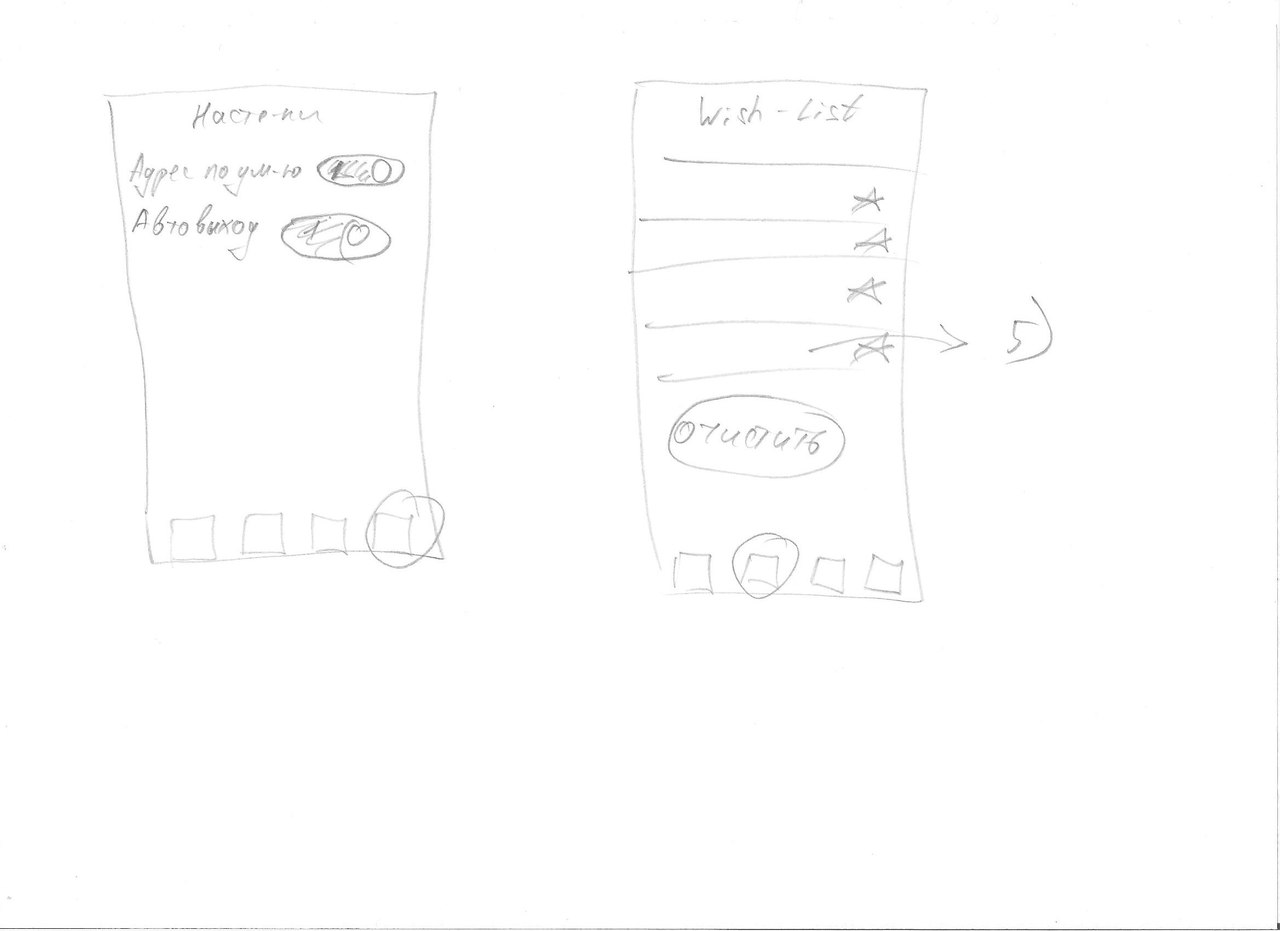 Насте-ки
Адрес по ум-ю
Автовыход
Wish-List
5)
очистить